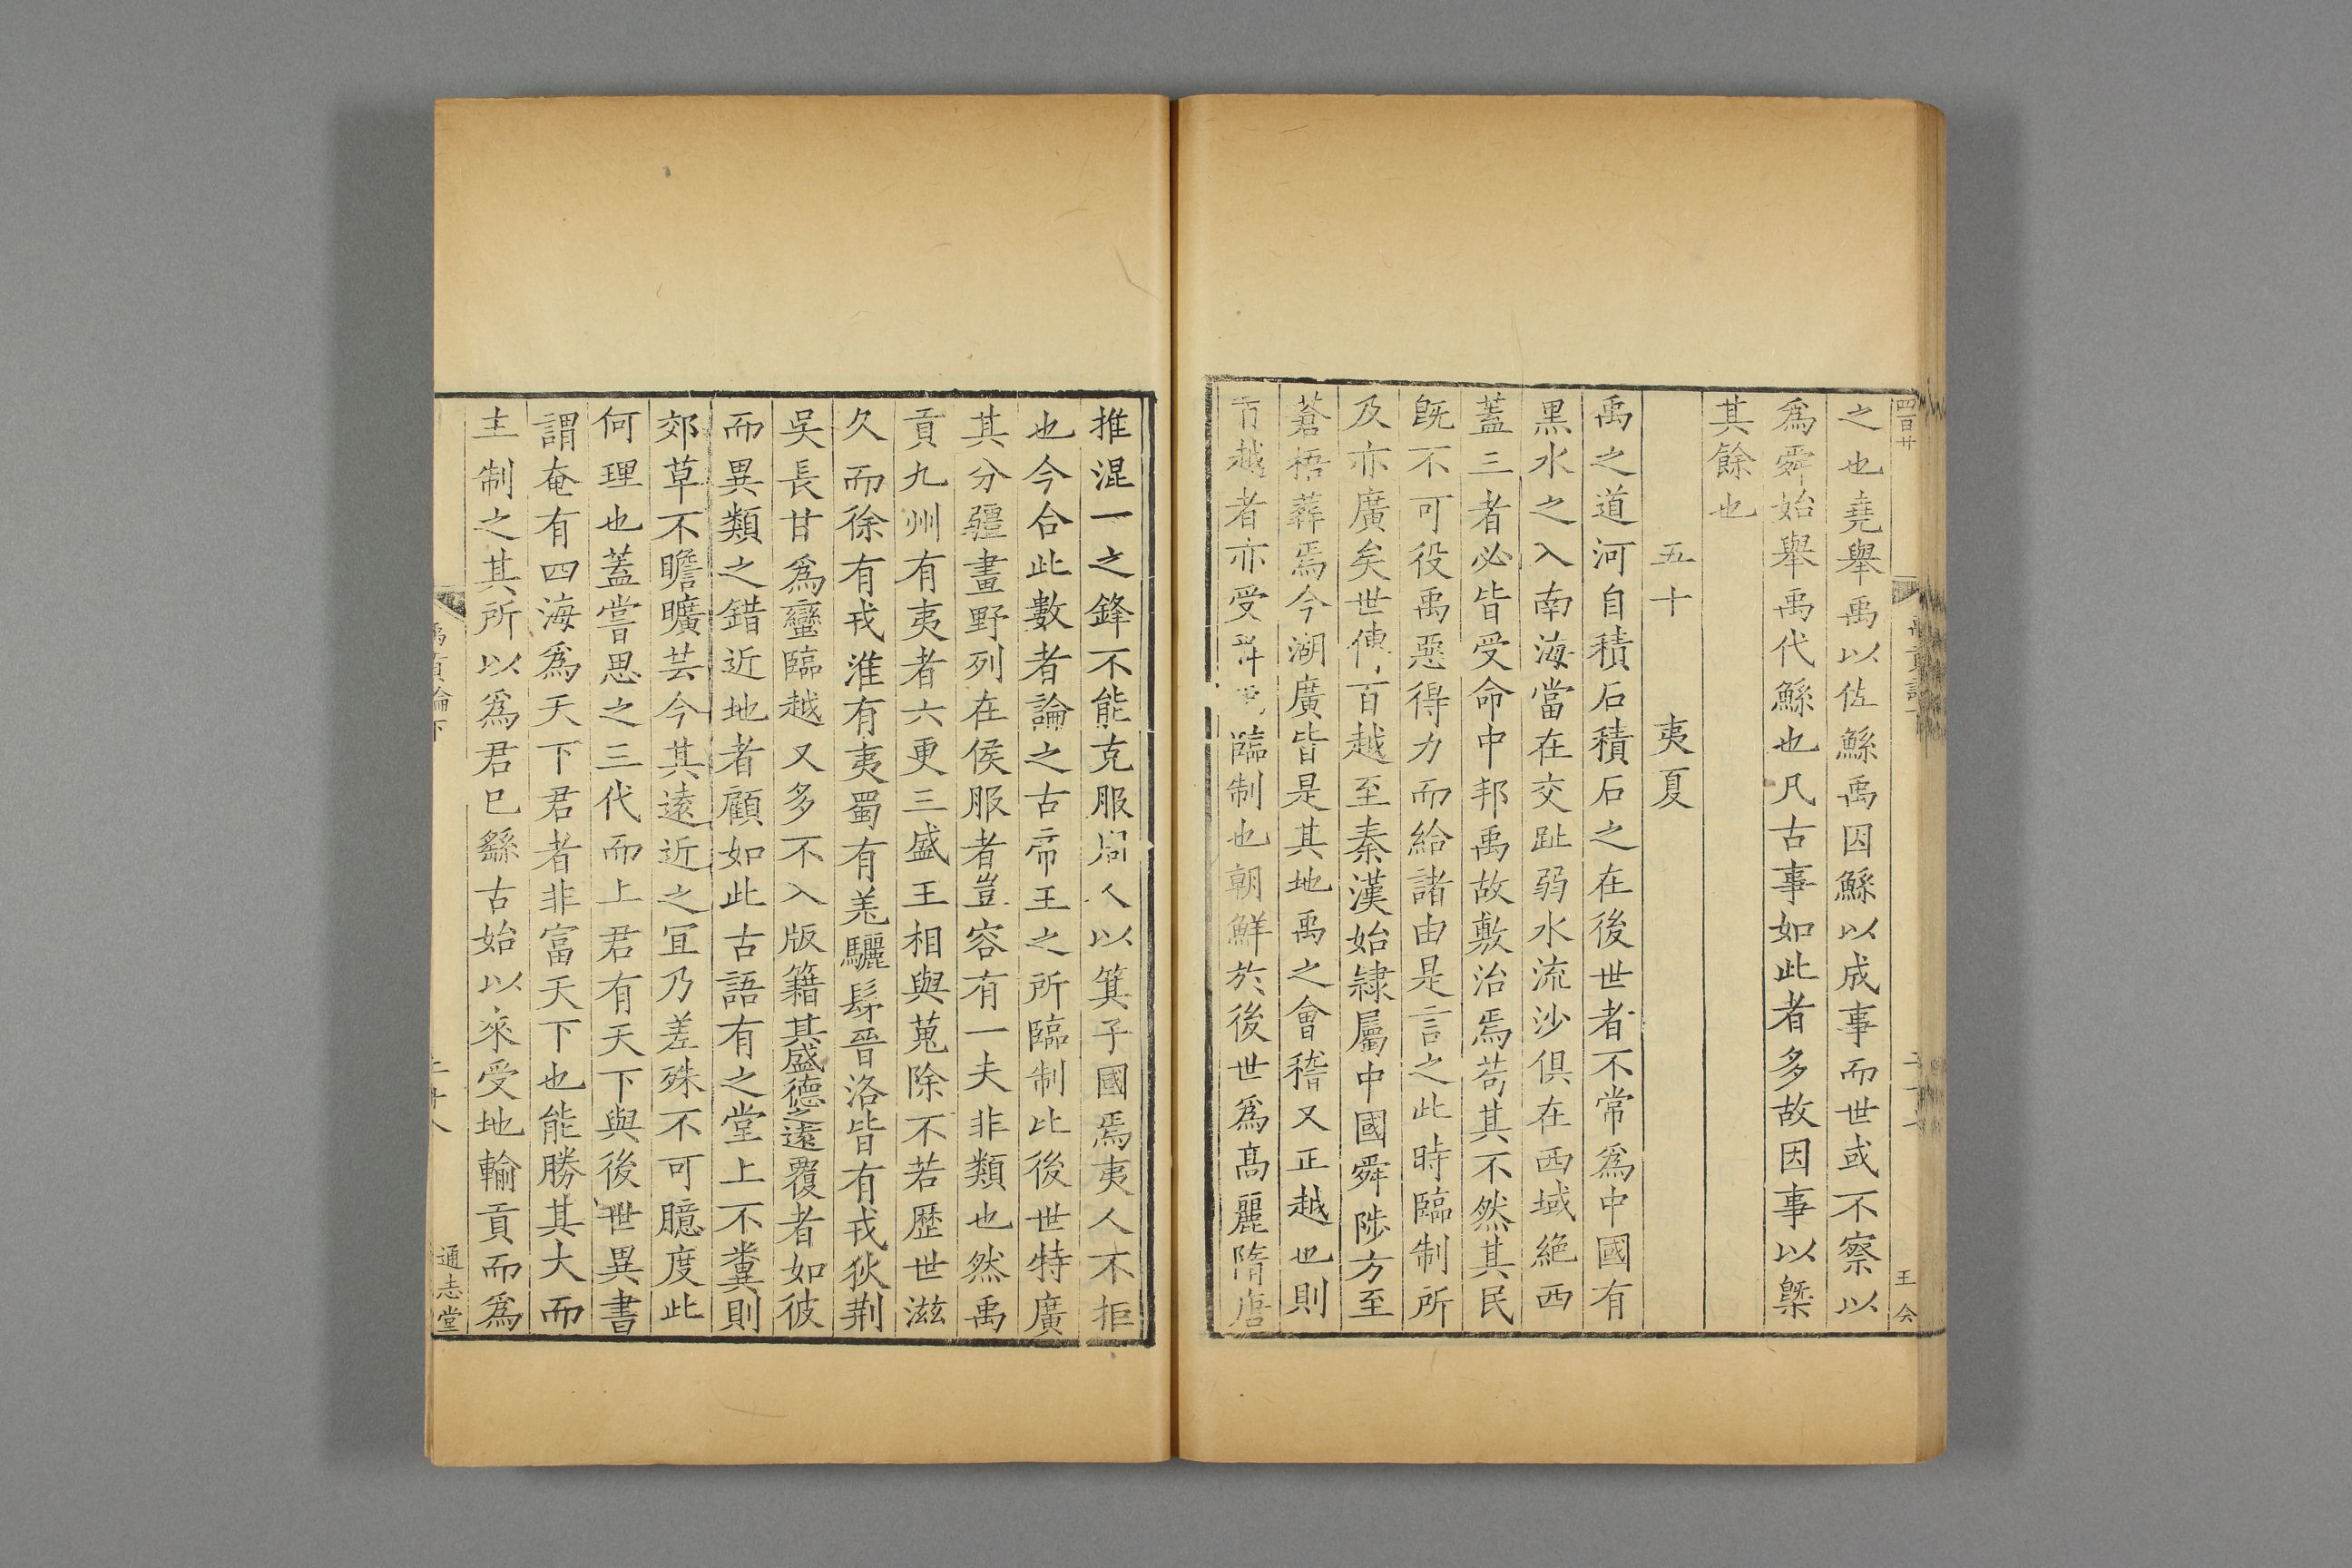 四百廿
王 㑹
之也堯舉禹以佐鯀禹因鯀以成事而世或不察以
爲舜始舉禹代鯀也凡古事如此者多故因事以槩
其餘也
五十 夷夏
禹之道河自積石積石之在後世者不常爲中國有
黑水之入南海當在交趾弱水流沙俱在西域絶西
蓋三者必皆受命中邦禹故敷治焉苟其不然其民
旣不可役禹惡得力而給諸由是言之此時臨制所
及亦廣矣世傳百越至秦漢始隷屬中國舜陟方至
蒼梧葬焉今湖廣皆是其地禹之會稽又正越也則
百越者亦受舜禹臨制也朝鮮於後世爲髙麗隋唐
推混一之鋒不能克服周人以箕子國焉夷人不拒
也今合此數者論之古帝王之所臨制比後世特廣
其分疆畫野列在侯服者豈容有一夫非類也然禹
貢九州有夷者六更三盛王相與蒐除不若歷世滋
久而徐有戎淮有夷蜀有羌驪髳晉洛皆有戎狄荆
吳長甘爲蠻臨越又多不入版籍其盛德之遠覆者如彼
而異類之錯近地者顧如此古語有之堂上不糞則
郊草不瞻曠芸今其遠近之冝乃差殊不可臆度此
何理也蓋嘗思之三代而上君有天下與後世異書
謂奄有四海爲天下君者非富天下也能勝其大而
主制之其所以爲君巳繇古始以來受地輸貢而爲
禹貢論下
通志堂